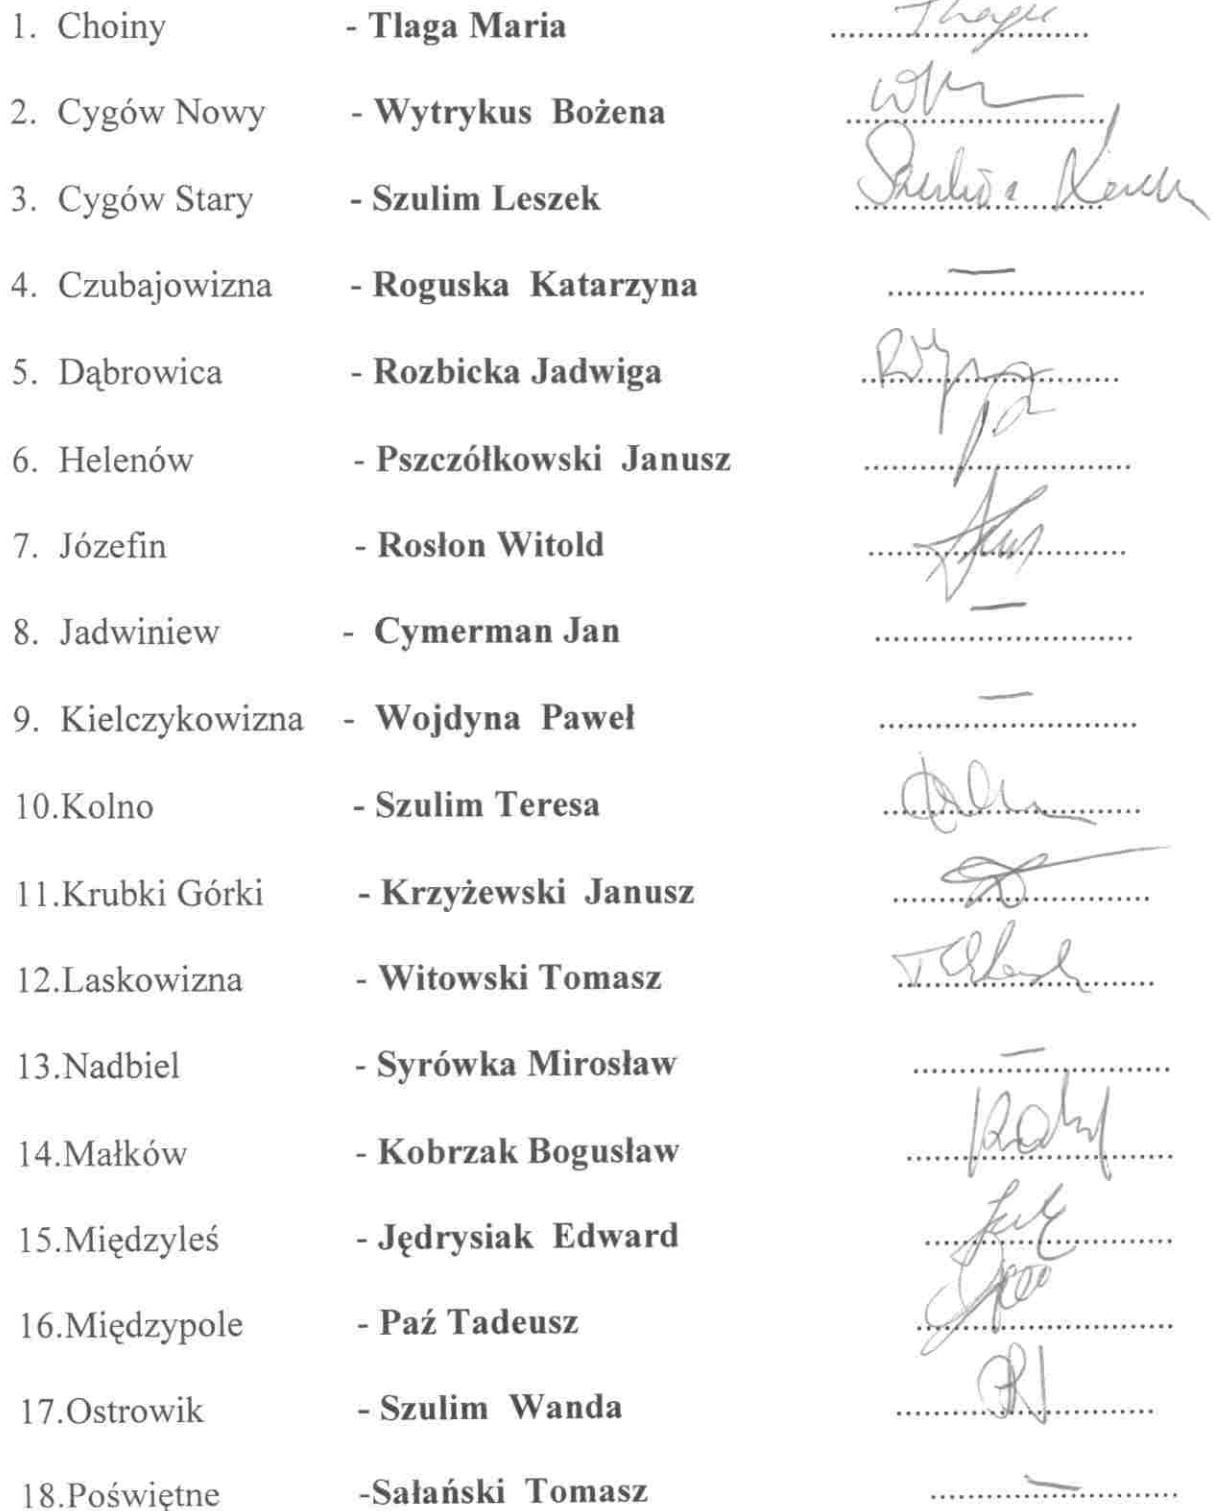 1. Choiny - Tlaga Maria ..............................
2. Cygów Nowy - Wytrykus Bożena ..............................
3. Cygów Stary - Szulim Leszek ..............................
4. Czubajowizna - Roguska Katarzyna ..............................
5. Dąbrowica - Rozbicka Jadwiga ..............................
6. Helenów - Pszczółkowski Janusz ..............................
7. Józefin - Rosłon Witold ..............................
8. Jadwiniew - Cymerman Jan ..............................
9. Kielczykowizna - Wojdyna Paweł ..............................
10.Kolno - Szulim Teresa ..............................
11.Krubki Górki - Krzyżewski Janusz ..............................
12.Laskowizna - Witowski Tomasz ..............................
13.Nadbiel - Syrówka Mirosław ..............................
14.Małków - Kobrzak Bogusław ..............................
15.Międzyleś - Jędrysiak Edward ..............................
16.Międzypole - Paź Tadeusz ..............................
17.Ostrowik - Szulim Wanda ..............................
18.Poświętne -Sałański Tomasz ..............................